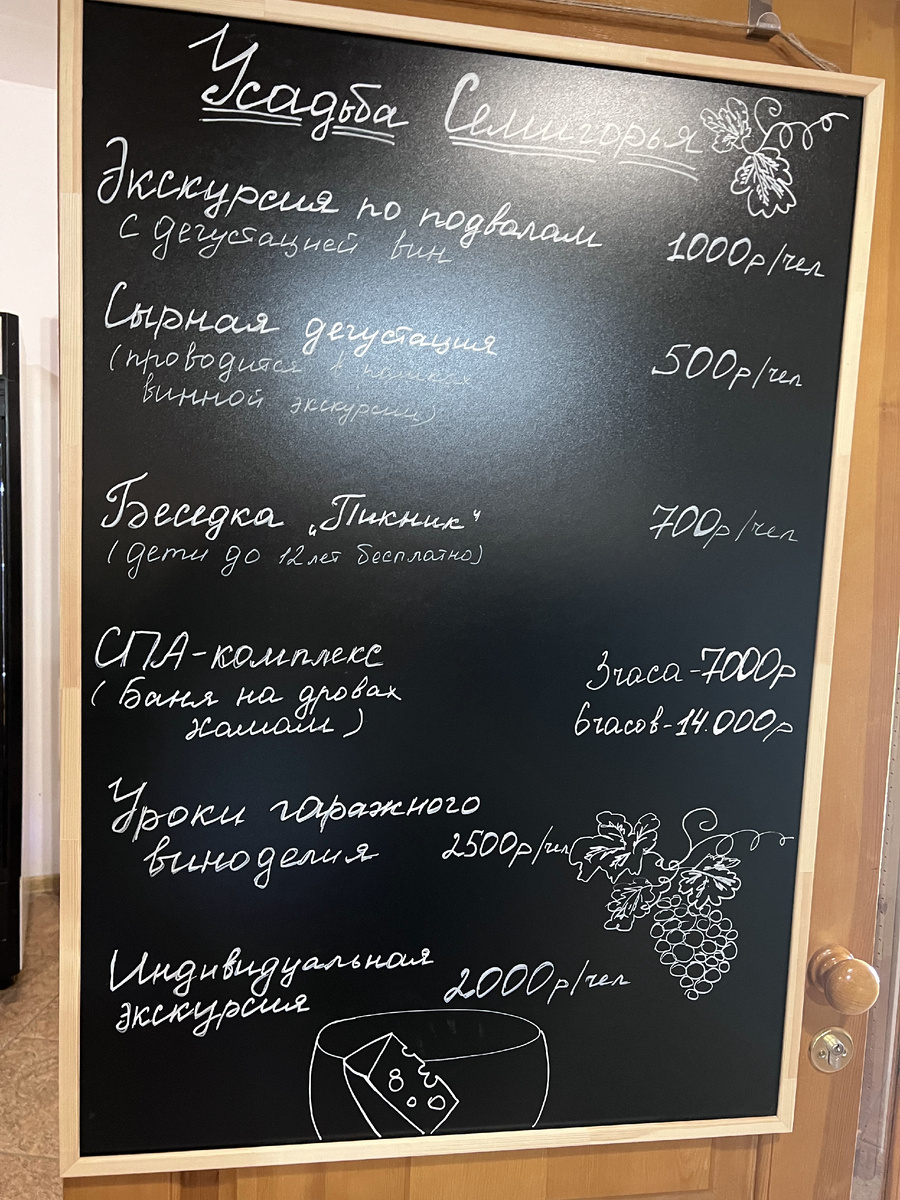 Усадьба Семигорья
Экскурсия по подвалам
с дегустацией вин 1000р/чел
Сырная дегустация
(проводится в рамках 500р/чел
винной экскурсии)
Беседка „Пикник“ 700р/чел
(дети до 12 лет бесплатно)
СПА-комплекс 3 часа - 7000р
(Баня на дровах
хамам) 6 часов - 14.000р
Уроки гаражного
виноделия 2500р/чел
Индивидуальная
экскурсия 2000р/чел